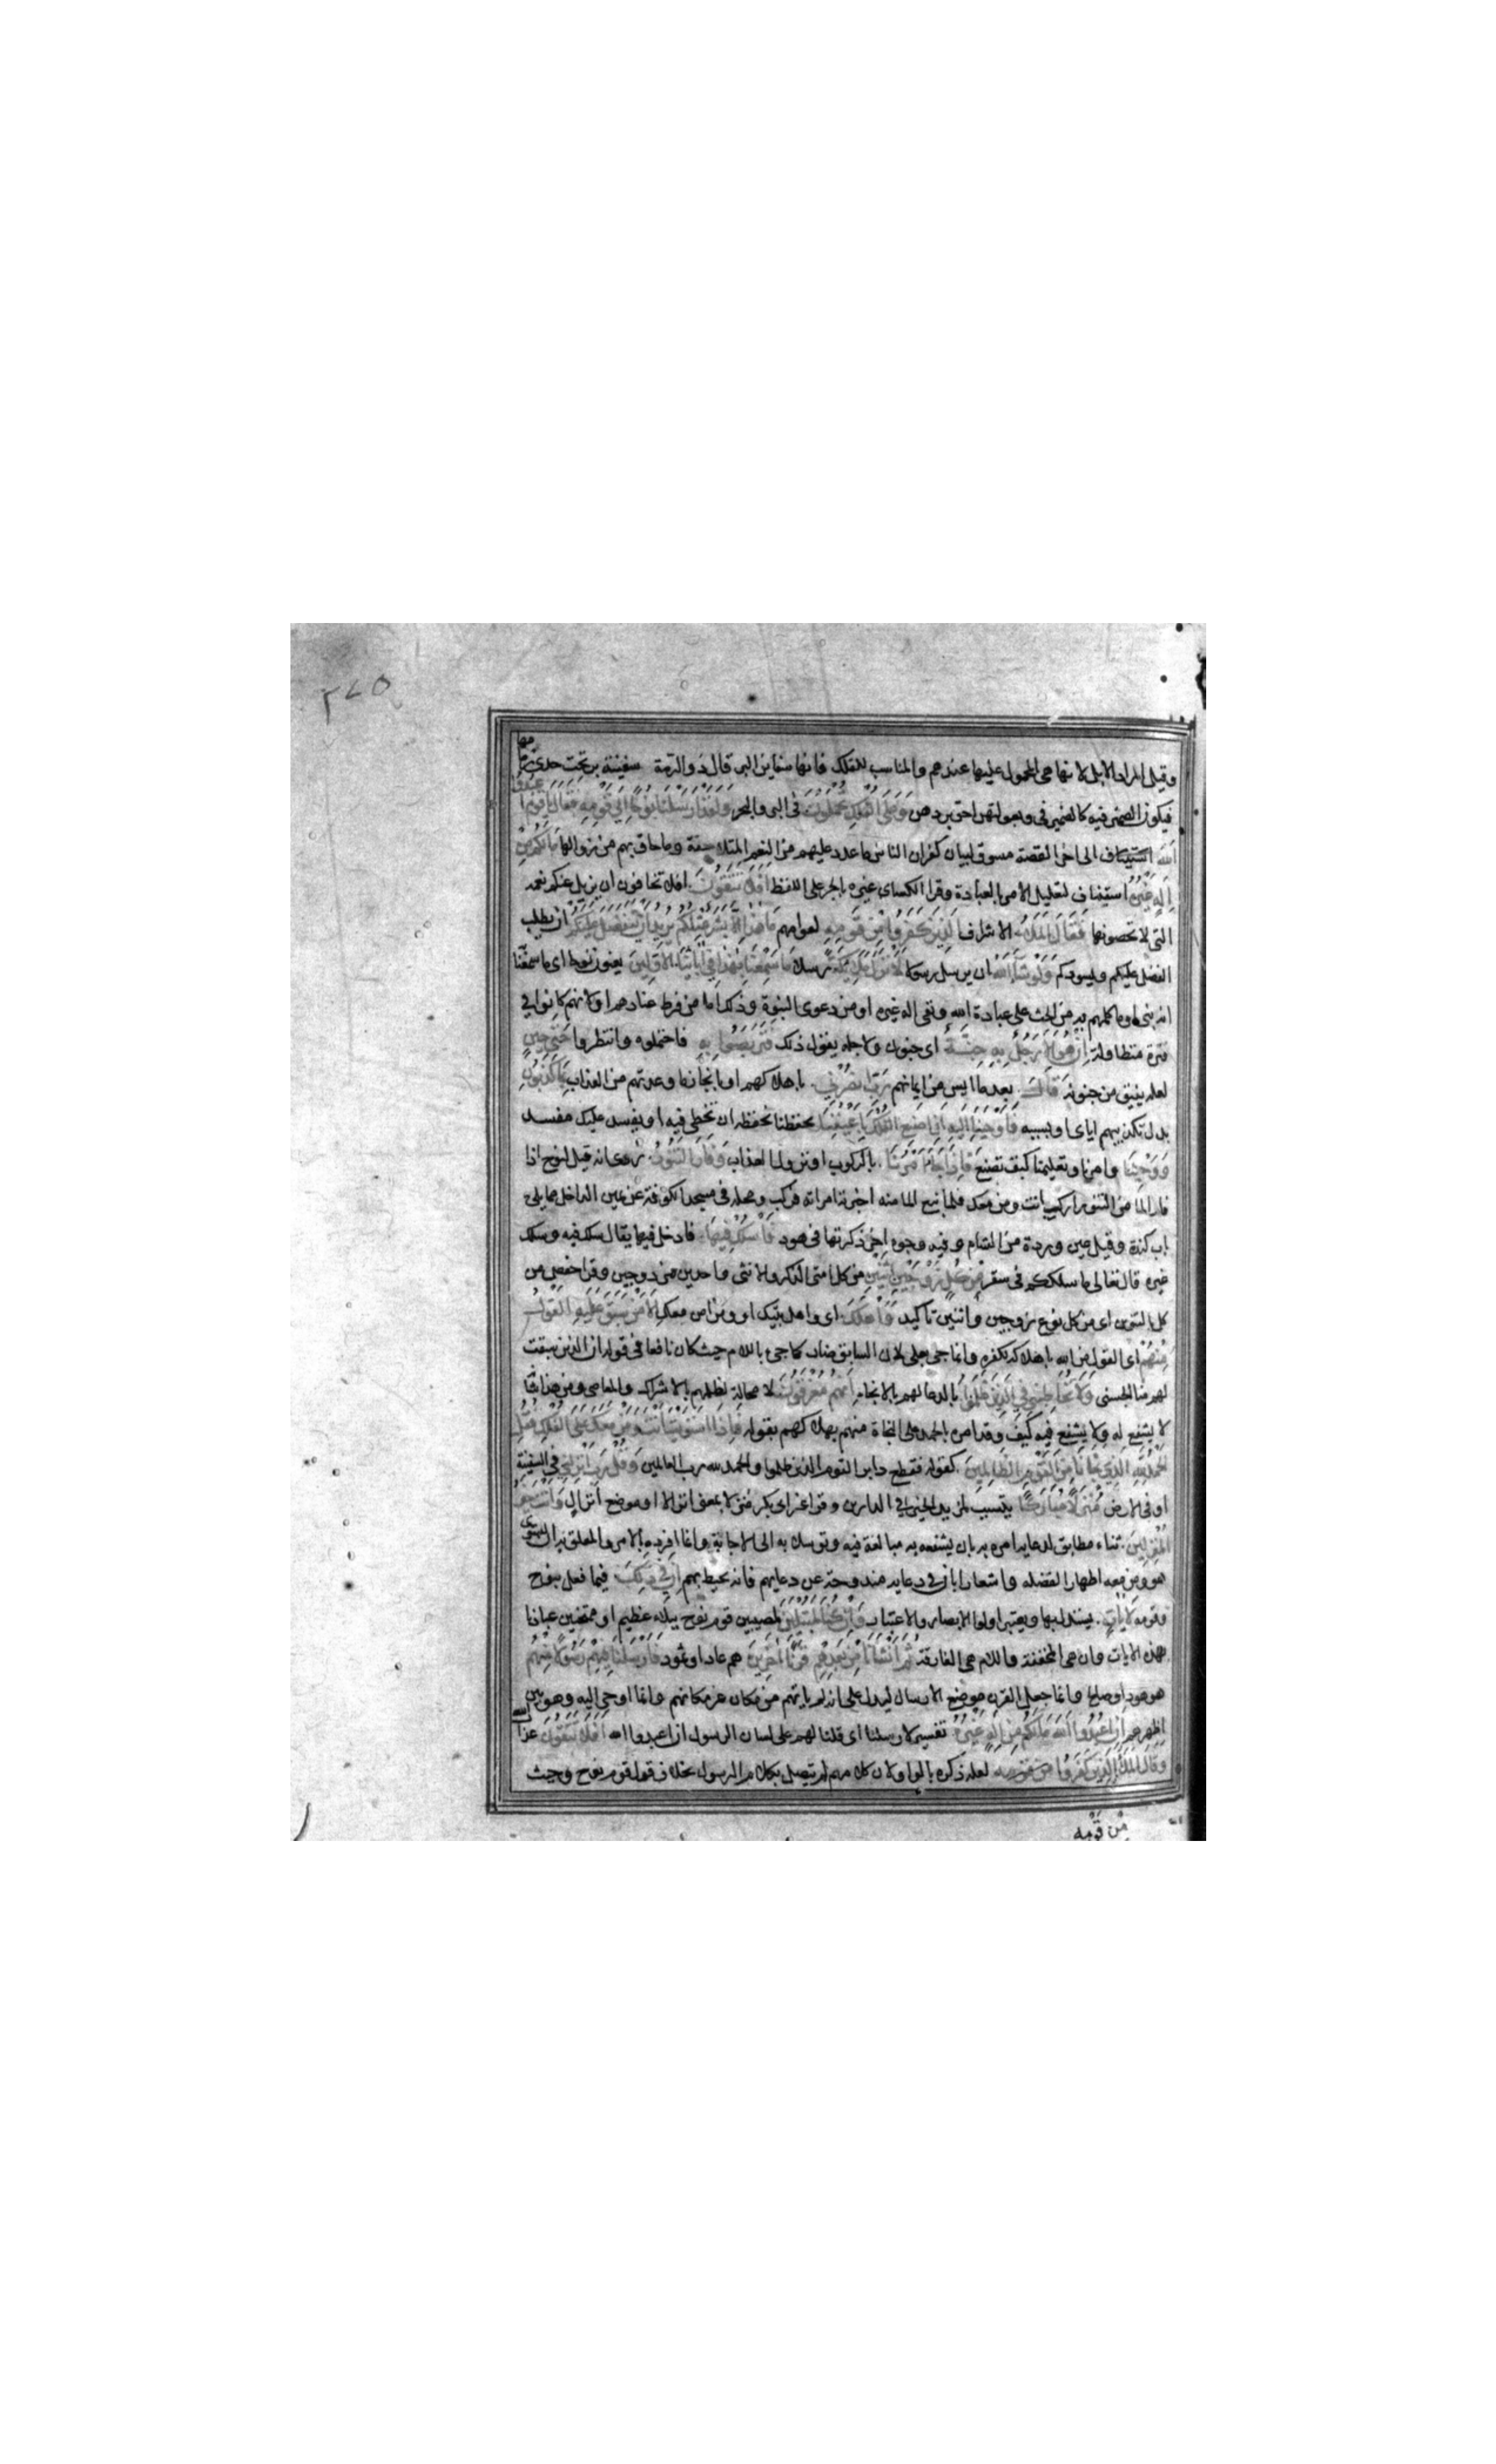 ٢٤٥
وقيل المراد الابل لانها هى المحمول عليها عندهم والمناسب للفلك فانها سفاين البر قال ذوالرمة سفينة بر تحت خدى زمامها
فيكون الضمير فيه كالضمير فى وبعولتهن احق بردهن وَعَلَى الْفُلْكِ تُحْمَلُونَ فى البر والبحر وَلَقَدْ اَرْسَلْنَا نُوحًا اِلَى قَوْمِهِ فَقَالَ يَا قَوْمِ اعْبُدُوا
اللهَ استيناف الى اخر القصة مسوق لبيان كفران الناس ما عدد عليهم من النعم المتلاحقة وما حاق بهم من زوالها مَا لَكُمْ مِنْ
اِلَهٍ غَيْرُهُ استيناف لتعليل الامر بالعبادة وقرا الكساى غيره بالجر على اللفظ اَفَلَا تَتَّقُونَ افلا تخافون ان يزيل عنكم نعمه
التى لا تحصونها فَقَالَ الْمَلَأُ الاشراف الَّذِينَ كَفَرُوا مِنْ قَوْمِهِ لعوامهم مَا هَذَا اِلَّا بَشَرٌ مِثْلُكُمْ يُرِيدُ اَنْ يَتَفَضَّلَ عَلَيْكُمْ ان يطلب
الفضل عليكم ويسودكم وَلَوْ شَآءَ اللهُ ان يرسل رسولا لَاَنْزَلَ مَلَائِكَةً رسلا مَا سَمِعْنَا بِهَذَا فِي اَبَائِنَا الْاَوَّلِينَ يعنون نوحا اى ما سمعنا
انه نبى اوما كلمهم به من الحث على عبادة الله ونفى اله غيره او من دعوى النبوة وذلك اما من فرط عنادهم او لانهم كانوا فى
فترة متطاولة اِنْ هُوَ اِلَّا رَجُلٌ بِهِ جِنَّةٌ اى جنون ولاجله يقول ذلك فَتَرَبَّصُوا بِهِ فاحتملوه وانتظروا حَتَّى حِينٍ
لعله يفيق من جنونه قَالَ بعدما ايس من ايمانهم رَبِّ انْصُرْنِي باهلاكهم او بانجاز ما وعدتهم من العذاب بِمَا كَذَّبُونِ
بدل تكذيبهم اياى او بسببه فَاَوْحَيْنَا اِلَيْهِ اَنِ اصْنَعِ الْفُلْكَ بِاَعْيُنِنَا بحفظنا نحفظه ان تخطى فيه او يفسد عليك مفسد
وَوَحْيِنَا وامرنا وتعليمنا كيف تصنع فَاِذَا جَآءَ اَمْرُنَا بالركوب او نزول العذاب وَفَارَ التَّنُّورُ روى انه قيل لنوح اذا
فار الما من التنور اركب انت ومن معك فلما نبع الما منه اخبرته امراته فركب ومحله فى مسجد الكوفة عن يمين الداخل مما يلى
باب كندة وقيل عين وردة من الشام وفيه وجوه اخر ذكرتها فى هود فَاسْلُكْ فِيهَا فادخل فيها يقال سلك فيه وسلك
غيره قال تعالى ما سلككم فى سقر مِنْ كُلٍّ زَوْجَيْنِ اثْنَيْنِ من كل امتى الذكر والانثى واحدين من دوجين وقرا حفص من
كل بالتنوين اى من كل نوع زوجين واثنين تاكيد وَاَهْلَكَ اى واهل بيتك او ومن امن معك اِلَّا مَنْ سَبَقَ عَلَيْهِ الْقَوْلُ
مِنْهُمْ اى القول من الله باهلاكه لكفره وانما جى بعلى لان السابق ضار كما جىء باللام حيث كان نافعا فى قوله ان الذين سبقت
لهم منا الحسنى وَلَا تُخَاطِبْنِي فِي الَّذِينَ ظَلَمُوا بالدعا لهم بالانجاء اِنَّهُمْ مُغْرَقُونَ لا محالة لظلمهم بالاشراك والمعاصى ومن هذا شانه
لا يشفع له ولا يشفع فيه كيف وقد امره بالحمد على النجاة منهم بهلاكهم بقوله فَاِذَا اسْتَوَيْتَ اَنْتَ وَمَنْ مَعَكَ عَلَى الْفُلْكِ فَقُلِ
الْحَمْدُ لِلّهِ الَّذِي نَجَّانَا مِنَ الْقَوْمِ الظَّالِمِينَ كقوله فقطع دابر القوم الذين ظلموا والحمد لله رب العالمين وَقُلْ رَبِّ اَنْزِلْنِي فى السفينة
او فى الارض مُنْزَلًا مُبَارَكًا يتسبب لمزيد الخير فى الدارين وقرا غير ابى بكر منزلا بمعنى انزالا او موضع انزال وَاَنْتَ خَيْرُ
الْمُنْزِلِينَ ثناء مطابق لدعايه امره بان يشفعه به مبالغة فيه وتوسلا به الى الاجابة وانما افرده بالامر والمعلق به ان يستوى
هو ومن معه اظهارا لفضله واشعارا بان فى دعايه مندوحة عن دعايهم فانه يحيط بهم اِنَّ فِي ذَلِكَ فيما فعل بنوح
وقومه لَاَيَاتٍ يستدل بها ويعتبر اولوا الابصار والاعتبار وَاِنْ كُنَّا لَمُبْتَلِينَ لمصيبين قوم نوح ببلاء عظيم او ممتحنين عبادنا
بهذه الايات وان هى المخففة واللام هى الفارقة ثُمَّ اَنْشَأْنَا مِنْ بَعْدِهِمْ قَرْنًا اَخَرِينَ هم عاد او ثمود فَاَرْسَلْنَا فِيهِمْ رَسُولًا مِنْهُمْ
هو هود او صالح وانما جعل القرن موضع الارسال ليدل على انه لم ياتهم من مكان غير مكانهم وانما اوحى اليه وهو بين
اظهرهم اَنِ اعْبُدُوا اللهَ مَا لَكُمْ مِنْ اِلَهٍ غَيْرُهُ تفسير لارسلنا اى قلنا لهم على لسان الرسول ان اعبدوا الله اَفَلَا تَتَّقُونَ عذاب الله
وَقَالَ الْمَلَأُ الَّذِينَ كَفَرُوا مِنْ قَوْمِهِ لعله ذكره بالواو لان كلامهم لم يتصل بكلام الرسول بخلاف قول قوم نوح وحيث
من قومه